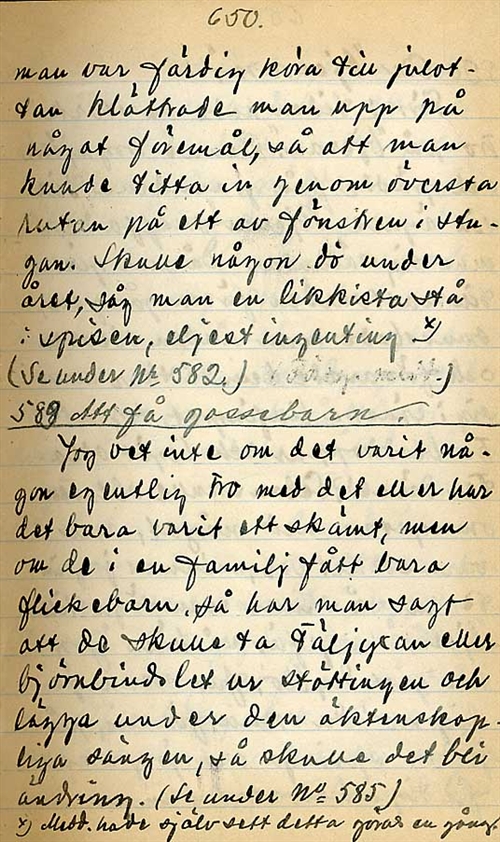 650.
man var färdig köra till julot-
tan klättrade man upp på
något föremål, så att man
kunde titta in genom översta
rutan på ett av fönstren i stu-
gan. Skulle någon dö under
året, såg man en likkista stå
i spisen, eljest ingenting x)
(Se under Nr 582.)
589 Att få gossebarn.
Jag vet inte om det varit nå-
gon egentlig tro med det eller har
det bara varit ett skämt, men
om de i en familj fått bara
flickebarn, så har man sagt
att de skulle ta täljyxan eller
björnbindslet ur stöttingen och
lägga under den äktenskap-
liga sängen, så skulle det bli
ändring. (Se under No 585)
x) Medd. hade själv sett detta göras en gång.